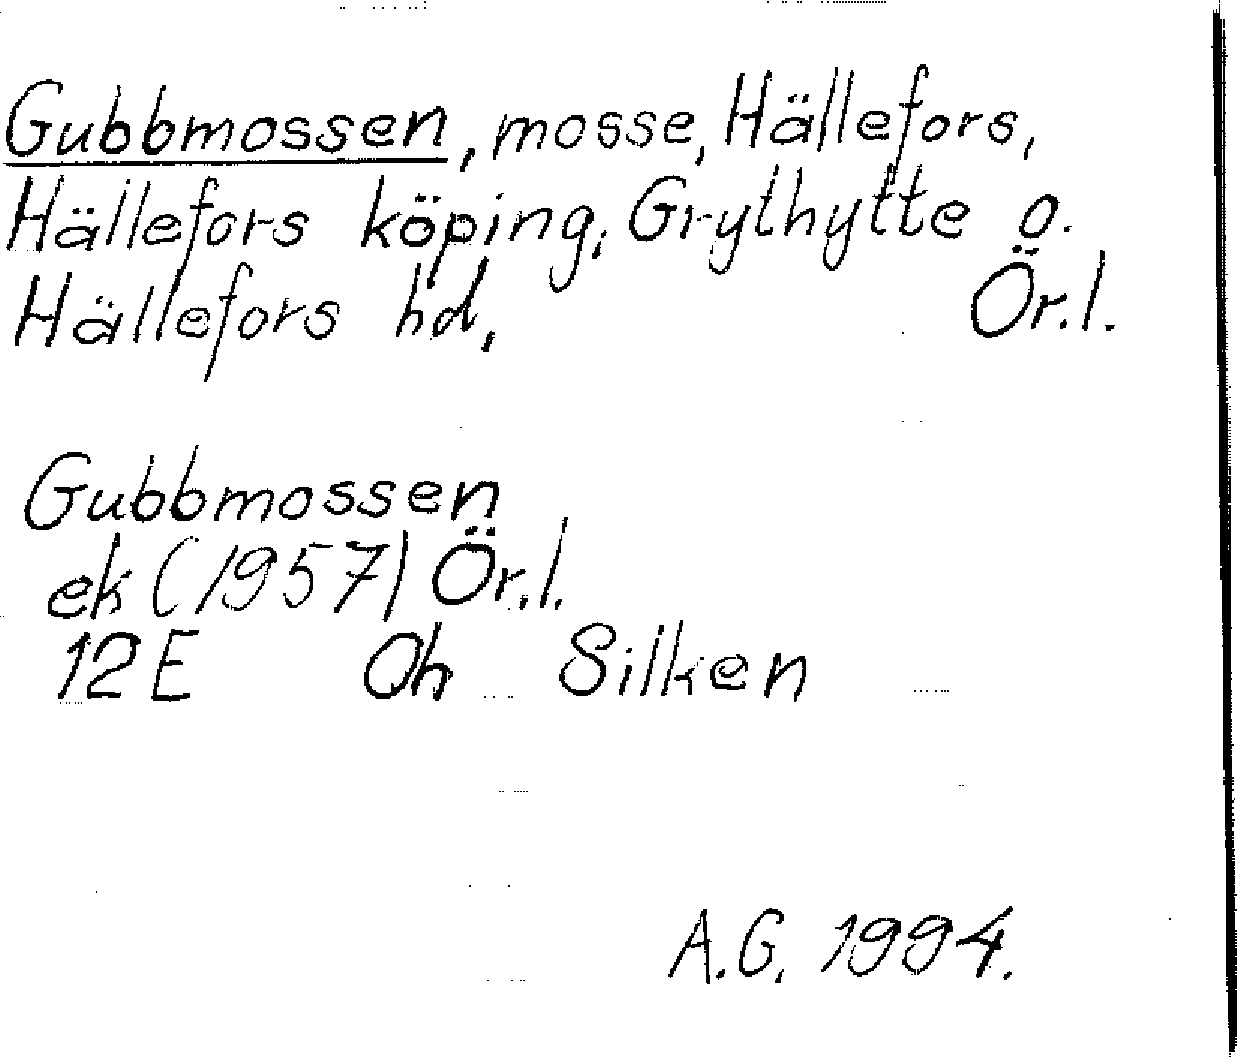 Gubbmossen, mosse, Hällefors,
Hällefors köping, Grythytte o.
Hällefors hd, Ör.l.
Gubbmossen
ek (1957) Ör.l.
12E Oh Silken
A.G. 1994.